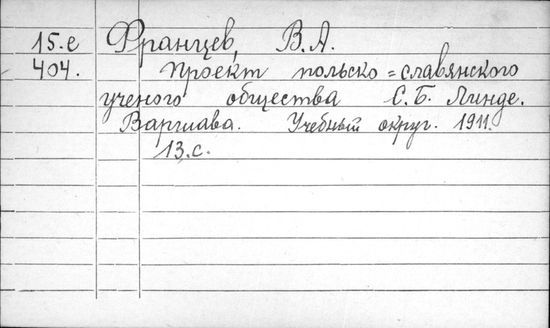 15.е Францев, В.А.
404. Проект польско=славянского
ученого общества С.Б. Линде.
Варшава. Учебный округ. 1911.
13.с.